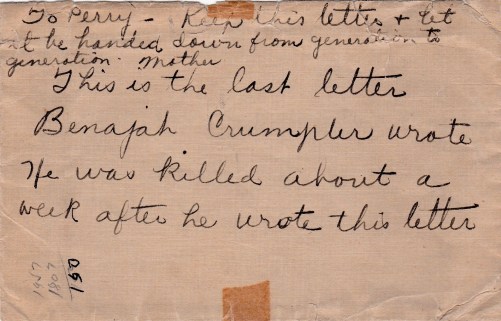 To Perry - Keep this letter & let
it be handed down from generation to
generation. Mother
This is the last letter
Benajah Crumpler wrote
He was killed about a
week after he wrote this letter
1957
1807
150